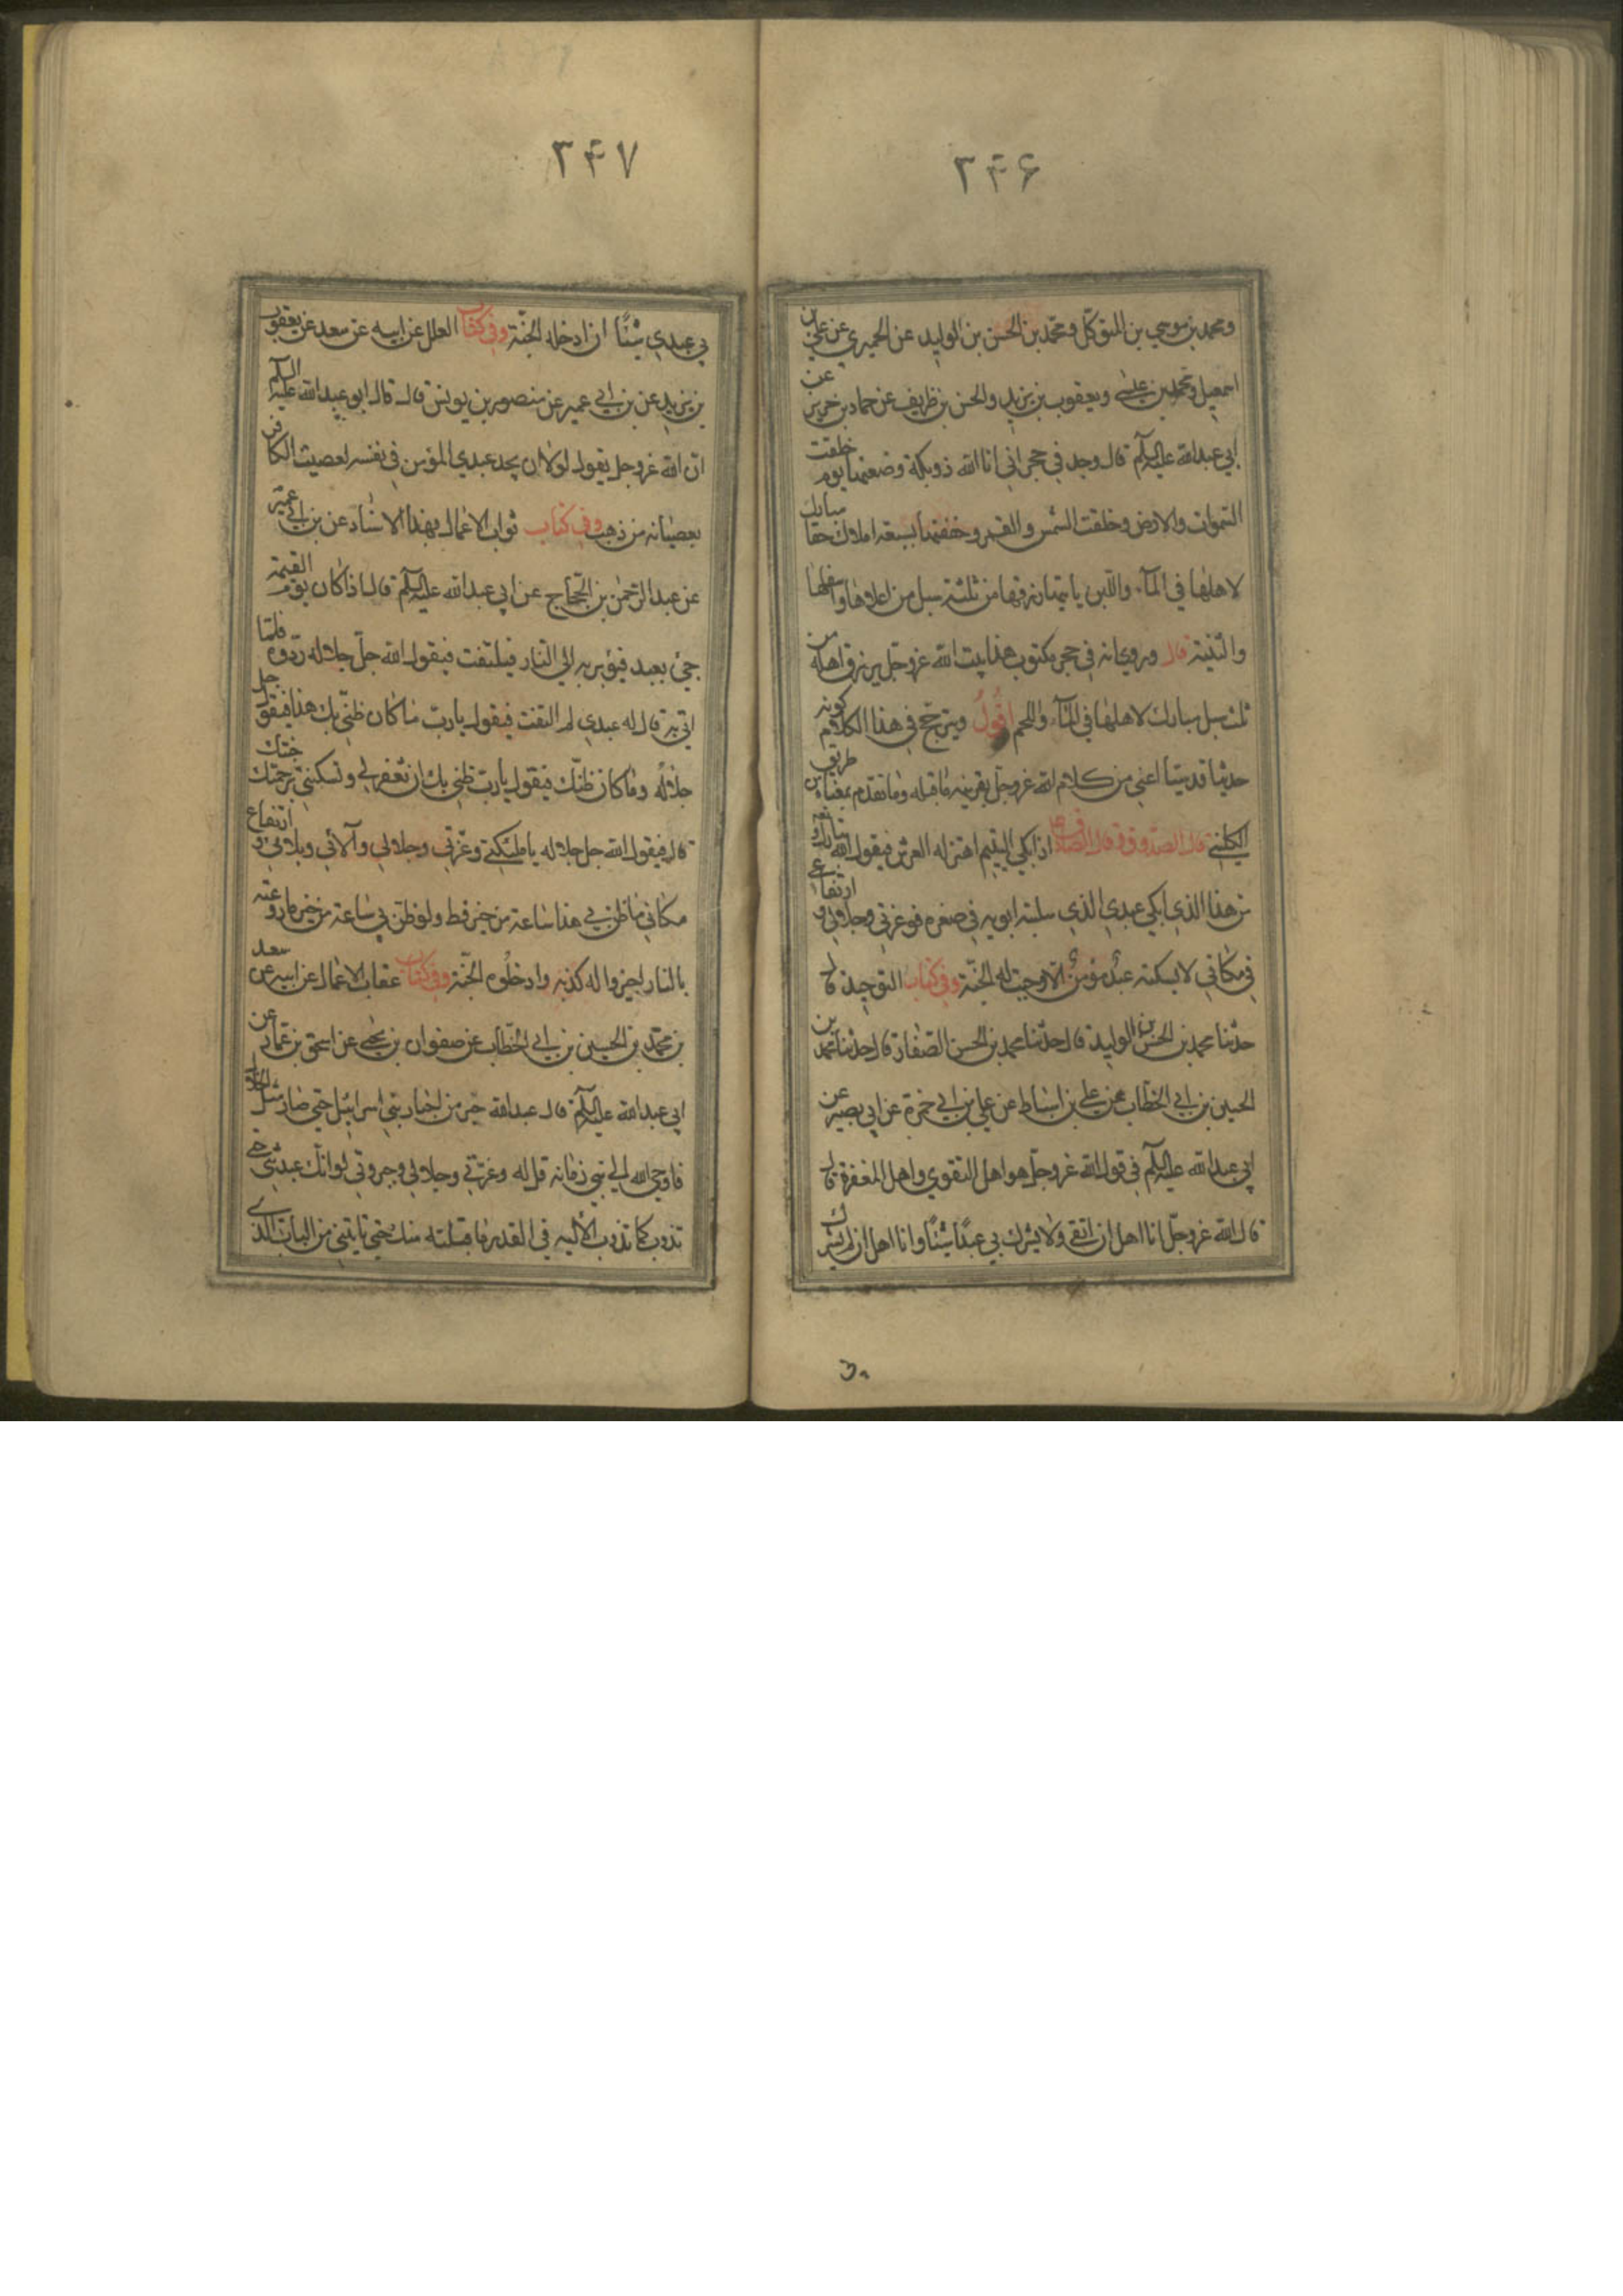 ۲۴۶
ومحمد بن موسي بن المتوكّل ومحمّد بن الحسن بن الوليد عن الحميري عن علي بن
اسمعيل ومحمد بن عيسٰي ويعقوب بن يزيد والحسن بن ظريف عن حماد بن حريز عن
ابي عبدالله عليه السلم قال وجد في حجر اني انا الله ذو بكة وضعتها يوم خلقت
السّموات والارض وخلقت الشمس والقمر وحففتها بسبعة املاك حفا مبارك
لاهلها في المآء واللبن ياتيها رزقها من ثلثة سبل من اعلاها واسفلها
والثنية قال وروي انه في حجر مكتوب هذا بيت الله عزوجل يرزق اهله من
ثلث سبل مبارك لاهلها في المآء واللحم اقول ويترجّح في هذا الكلام كونه
حديثا قدسيّا اعني من كلام الله عزوجل بقرينه ماقبله وماتقدم بمعناه من طريق
الكليني قال الصدوق وقال الصادق ع اذا بكي اليتيم اهتز له العرش فيقول الله تبارك وتعٰ
من هذا الذي ابكي عبدي الذي سلبته ابويه في صغره فوعزتي وجلالي وارتفاعي
في مكاني لا يسكته عبد مؤمن الّا وجبت له الجنّة وفي كتاب التوحيد قال
حدّثنا محمد بن الحسن بن الوليد قال حدّثنا محمد بن الحسن الصّفار قال حدثنا محمد بن
الحسين بن ابي الخطّاب عن علي بن اسباط عن علي بن ابي حمزة عن ابي بصير عن
ابي عبدالله عليه السلم في قول الله عزوجل هو اهل التقوي واهل المغفرة قال
قال الله عزوجلّ انا اهل ان اتقي ولا يشرك بي عبدي شيئًا وانا اهل ان لم يشرك
۲۴۷
بي عبدي شيئًا ان ادخله الجنّة وفي كتاب العلل عن ابيه عن سعد عن يعقوب
بن يزيد عن بن ابي عمير عن منصور بن يونس قال قال ابو عبدالله عليه السلم
انّ الله عزوجل يقول لولا ان يجد عبدي المؤمن في نفسه لعصبت الكافر
بعصابة من ذهب وفي كتاب ثواب الاعمال بهذا الاسناد عن بن ابي عمير
عن عبد الرّحمٰن بن الحجّاج عن ابي عبدالله عليه السلم قال اذا كان يوم القيمة
جئ بعبد فيؤمر به الي النار فيلتفت فيقول الله جلّ جلاله ردّوه فلمّا
اتي به قال له عبدي لم التفت فيقول يا ربّ ما كان ظنّي بك هذا فيقول جل
جلاله وما كان ظنّك فيقول يا ربّ ظني بك ان تغفر لي وتسكنني برحمتك جنتك
قال فيقول الله جل جلاله يا ملئكتي وعزّتي وجلالي وآلائي وبلائي وارتفاع
مكاني ما ظن بي هذا ساعة من خير قط ولو ظنّ بي ساعة من خير ما روعته
بالنار اجيزوا له كذبه وادخلُوه الجنّة وفي كتاب عقاب الاعمال عن ابيه عن سعد
بن محمّد بن الحسين بن ابي الخطّاب عن صفوان بن يحيٰي عن اسحٰق بن عمّار عن
ابي عبدالله عليه السلم قال عبدالله حبر من احبار بني اسرائيل حتي صار مثل الخلال
فاوحي الله الي نبي زمانه قل له وعزّتي وجلالي وجبروتي لو انّك عبدتني حتي
تذوب كما تذوب الألية في القدر ما قبلته منك حتي تاتيني من الباب الذي